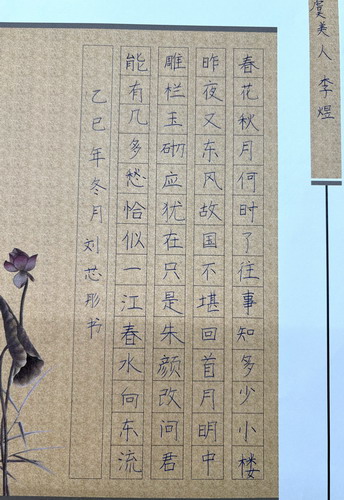 虞美人 李煜
春花秋月何时了往事知多少小楼
昨夜又东风故国不堪回首月明中
雕栏玉砌应犹在只是朱颜改问君
能有几多愁恰似一江春水向东流
乙巳年冬月刘芯彤书